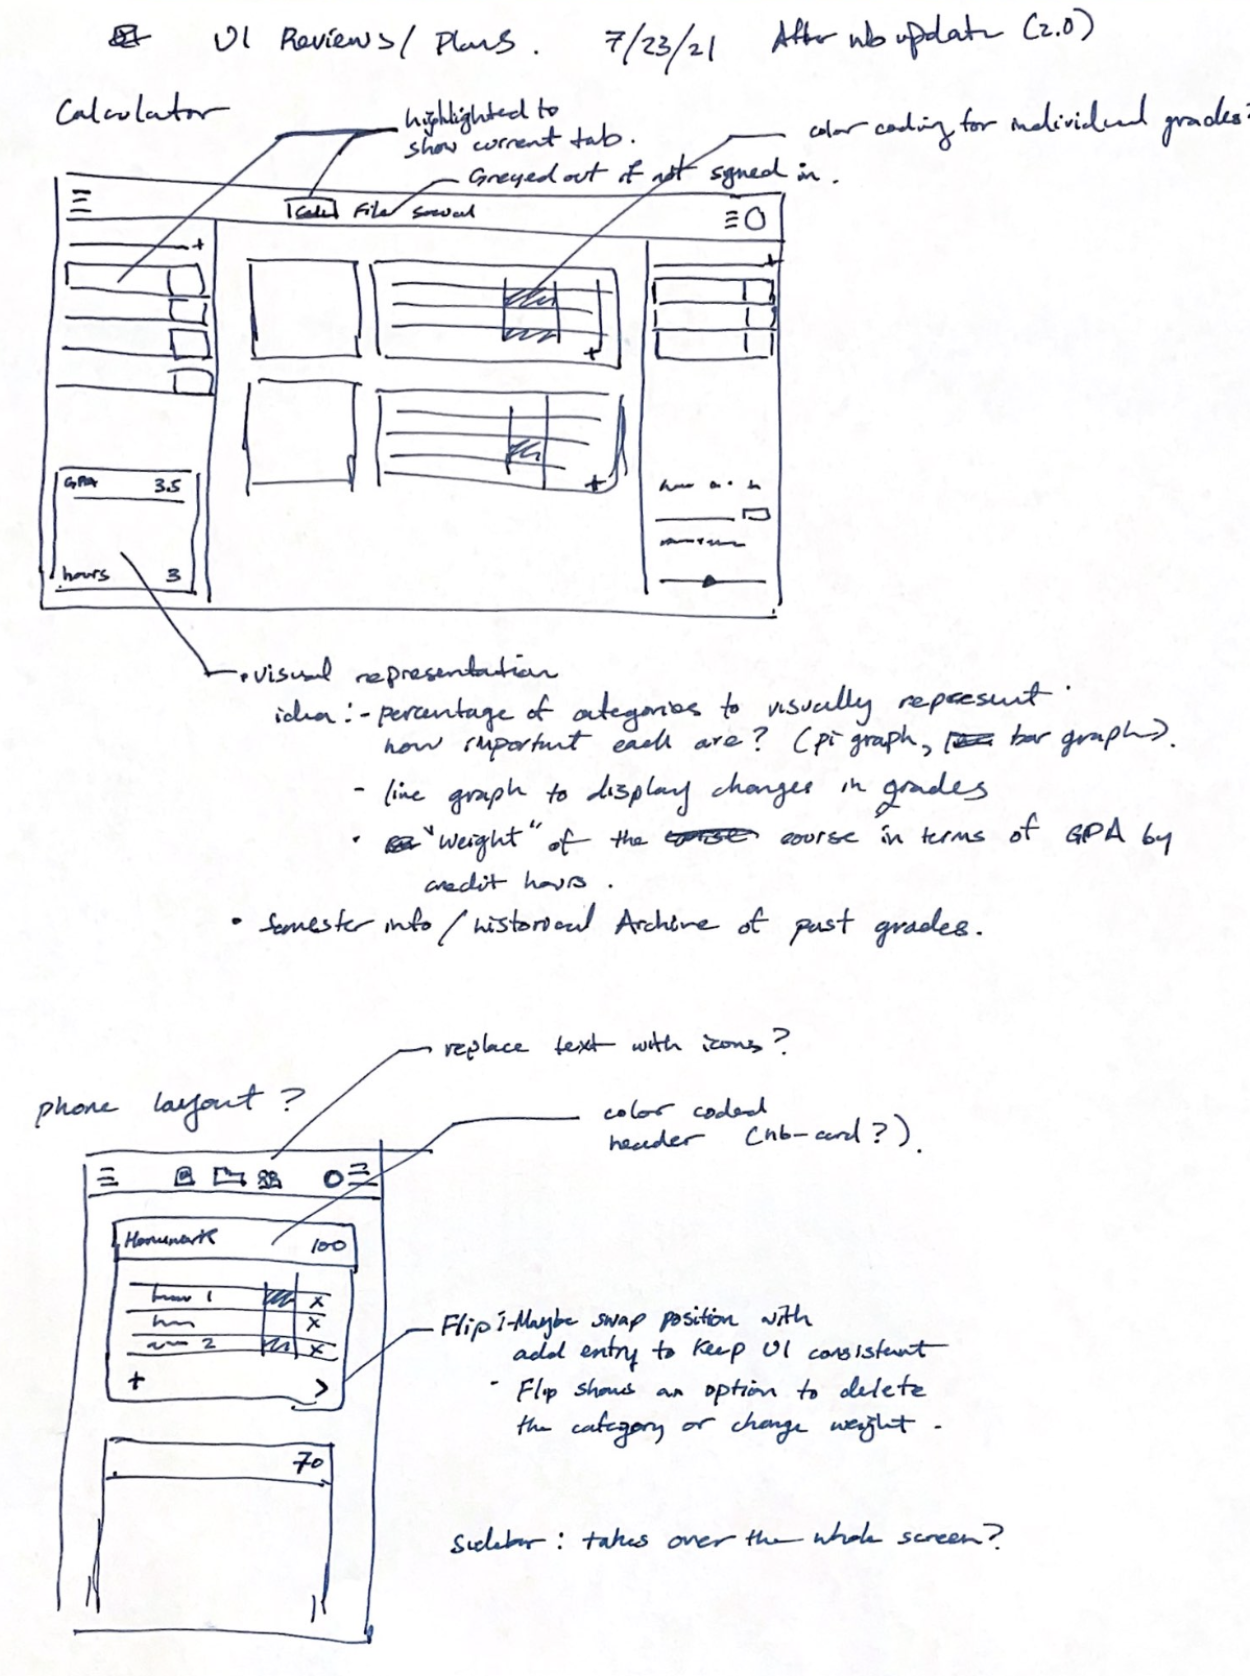 UI Reviews/ Plans. 7/23/21 After nb update (2.0)
Calculator
highlighted to
show current tab.
color coding for individual grades?
Greyed out if not signed in.
File
GPA 3.5
hours 3
• visual representation
idea: - percentage of categories to visually represent
how important each are? (pi graph, bar graph).
- line graph to display changes in grades
• "Weight" of the course in terms of GPA by
credit hours.
• Semester info / historical Archive of past grades.
replace text with icons?
phone layout?
color coded
header (nb-card?).
Homework 100
1
2
+ >
Flip: - Maybe swap position with
add entry to keep UI consistent
- Flip shows an option to delete
the category or change weight.
70
Sidebar: takes over the whole screen?